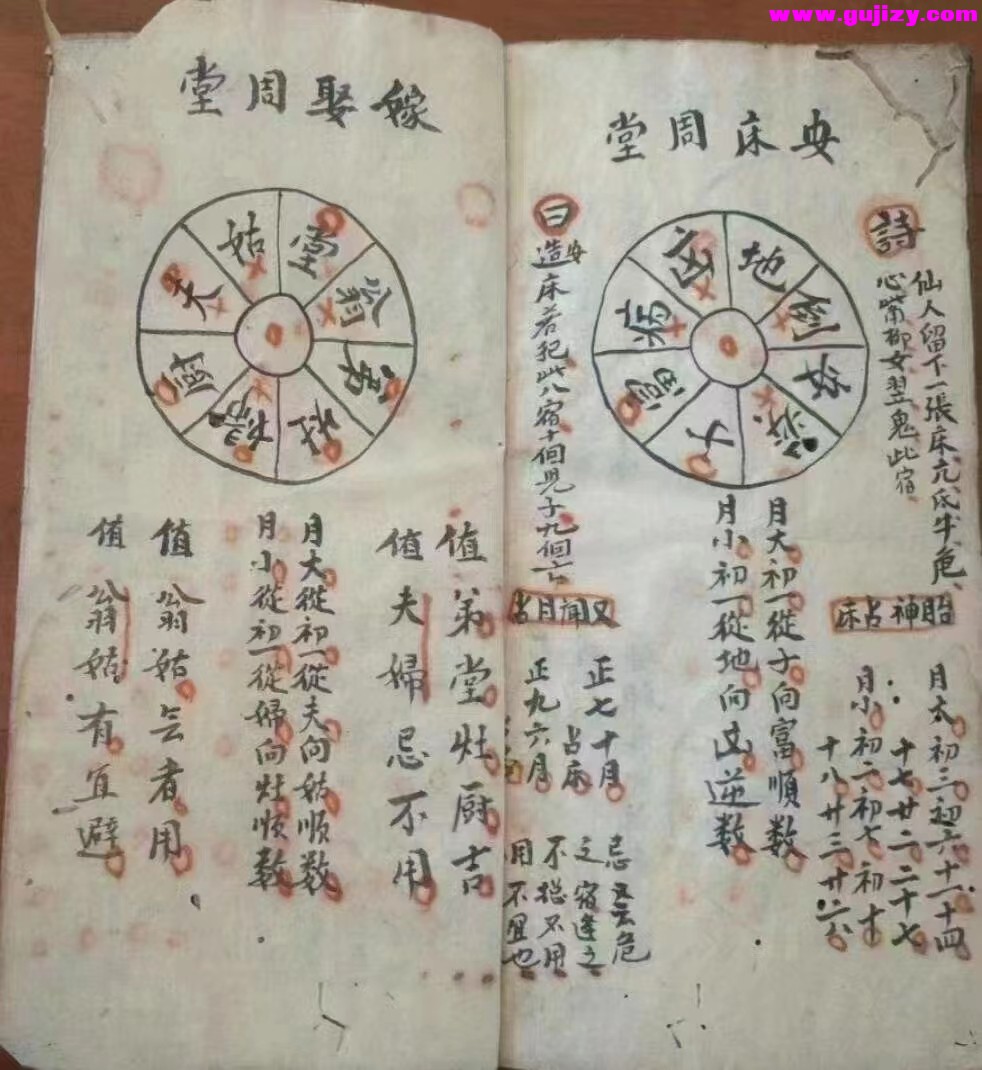 www.gujizy.com
安床周堂
詩
仙人留下一張床亢氐牛危
心觜柳女翌鬼此宿
曰
安
造床若犯此八宿十個児子九個亡
地
病
富
子
胎神占床
月大初三初六十一十四
十七廿二二十七
月小初二初七初十
十八廿三廿六
月大初一從子向富順数
月小初一從地向逆数
又聞月占
正七十月
占床
正九六月
忌危
之宿逢之
不捴不用
用不宜也
嫁娶周堂
堂
翁
弟
灶
婦
厨
夫
姑
值弟堂灶厨吉
值夫婦忌不用
月大從初一從夫向姑順数
月小從初一從婦向灶順数
值翁姑者用
值翁姑有宜避